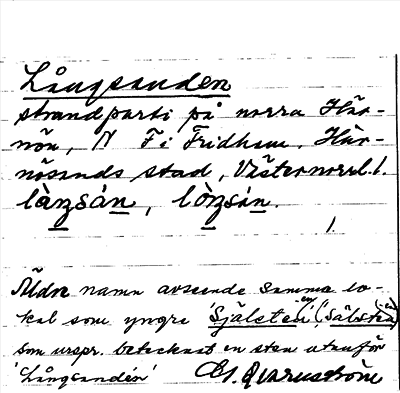 Långsanden
strandparti på norra Här-
nön, N F i Fridhem, Här-
nösands stad, Västernorrl. l.
1
Äldre namn avseende samma lo-
kal som yngre 'Själsten', ('Sälsten')
som urspr. betecknat en sten utanför
'Långsanden'